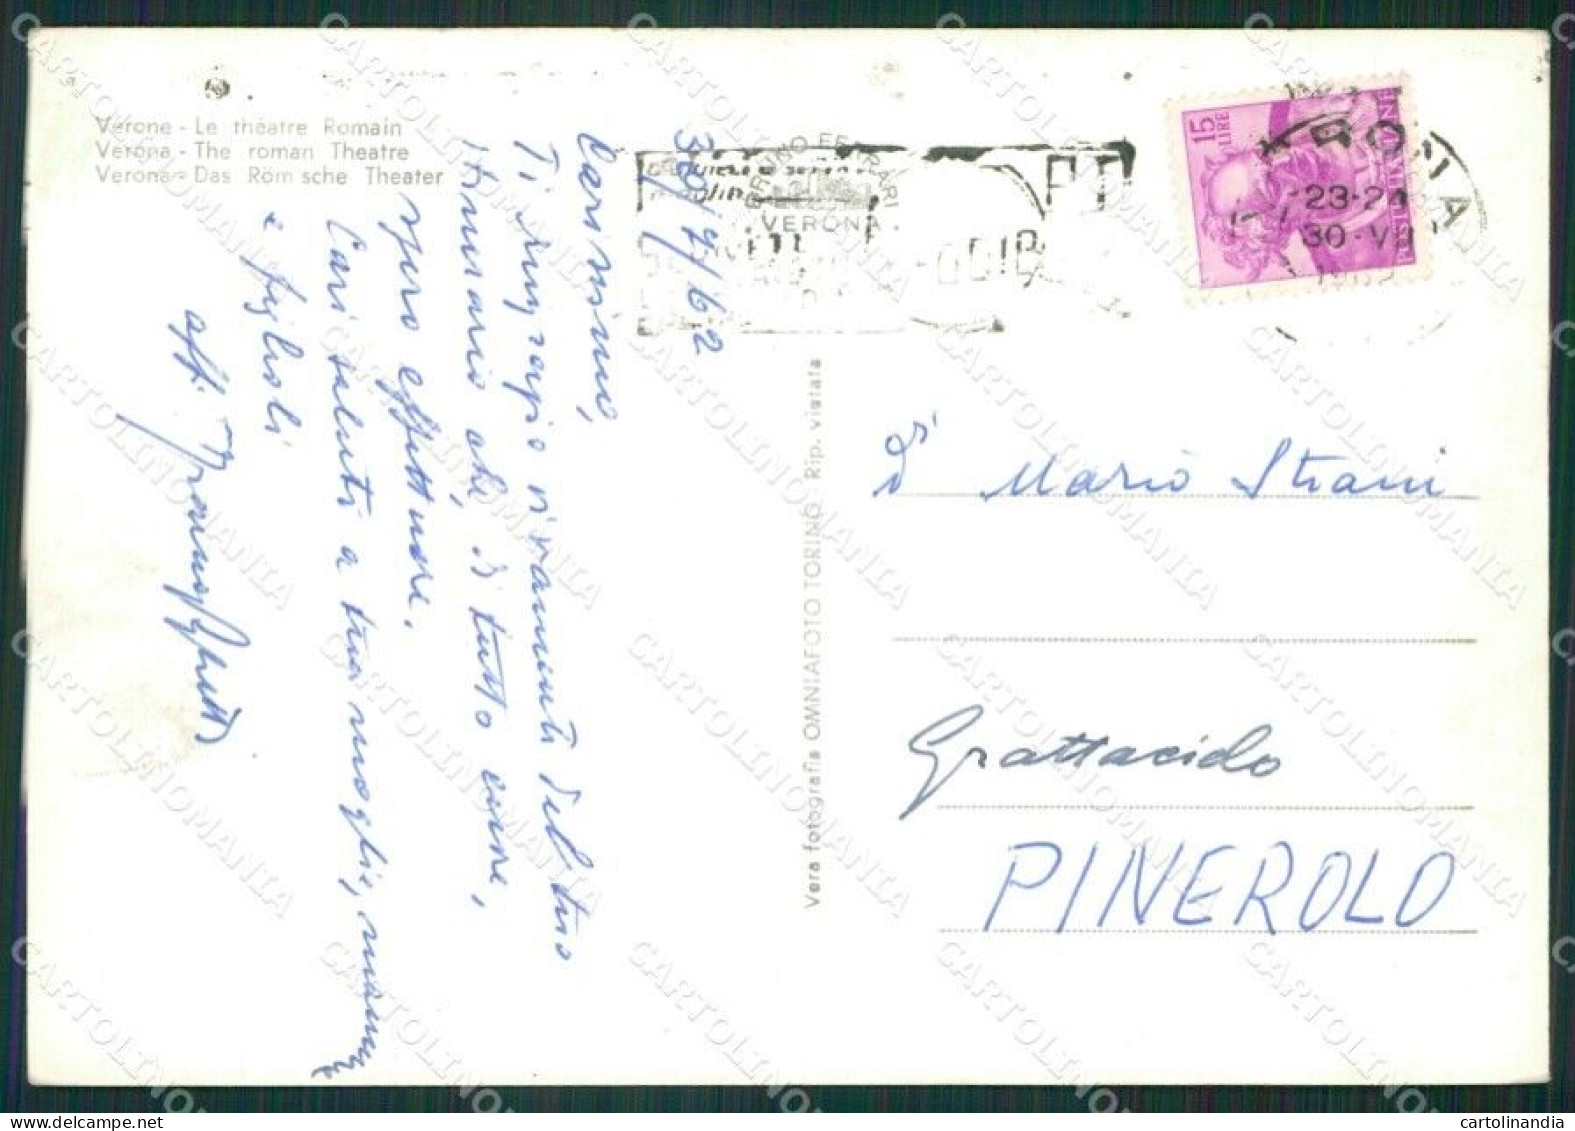 Verone - Le théatre Romain
Verona - The roman Theatre
Verona - Das Röm sche Theater
30/7/62
Carissimo,
Ti ringrazio vivamente del tuo
itinerario che, se tutto viene,
spero effettuare.
Cari saluti a tua moglie, mamma
e figlioli
aff.
BRUNO FERRARI
VERONA
15 LIRE
23-24
30-VII
Vera fotografia OMNIAFOTO TORINO Rip. vietata
Dr Mario Strani
Grattacielo
PINEROLO
CARTOLINOMANIA
cartolinandia